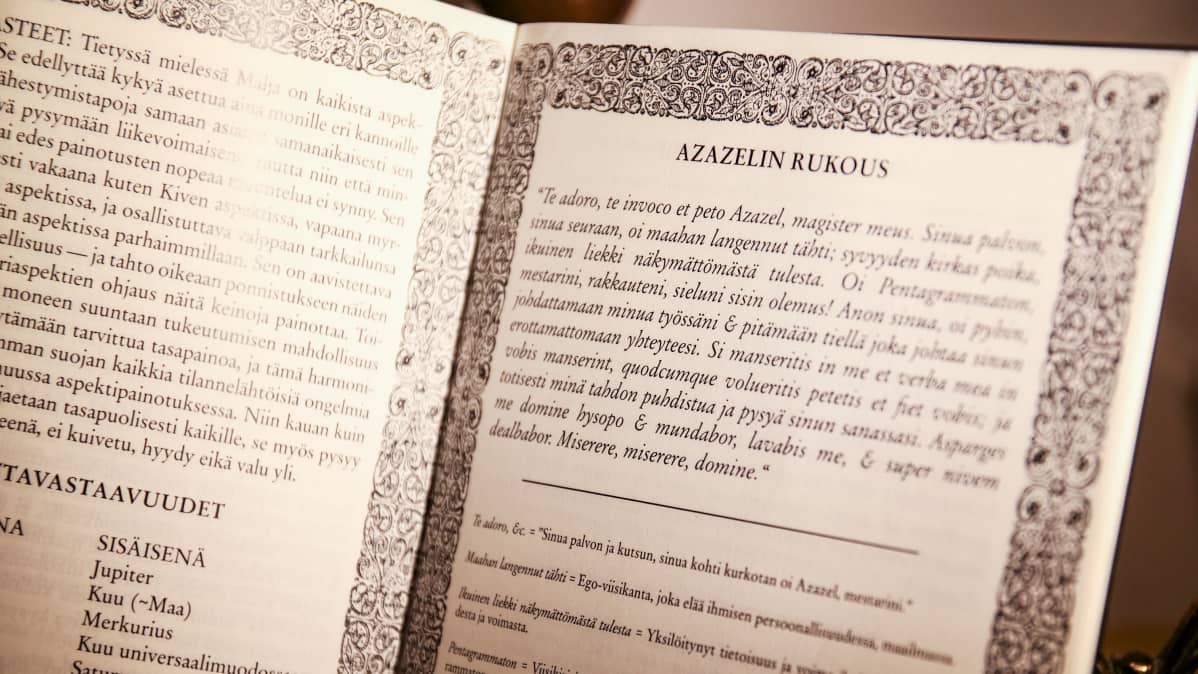 ASTEET: Tietyssä mielessä Malja on kaikista aspek-
Se edellyttää kykyä asettua aina monille eri kannoille
ähestymistapoja samaan asiaan samanaikaisesti sen
vä pysymään liikevoimaisena, mutta niin että min-
ai edes painotusten nopeaa
elua ei synny. Sen
esti vakaana kuten Kiven aspektissa, vapaana myr-
aspektissa, ja osallistuttava valppaan tarkkailunsa
än aspektissa parhaimmillaan. Sen on aavistettava
ellisuus — ja tahto oikeaan ponnistukseen näiden
riaspektien ohjaus näitä keinoja painottaa. Toi-
moneen suuntaan tukeutumisen mahdollisuus
ytämään tarvittua tasapainoa, ja tämä harmoni-
mman suojan kaikkia tilannelähtöisiä ongelmia
muussa aspektipainotuksessa. Niin kauan kuin
jaetaan tasapuolisesti kaikille, se myös pysyy
eenä, ei kuivetu, hyydy eikä valu yli.
TTAVASTAAVUUDET
NA SISÄISENÄ
Jupiter
Kuu (~Maa)
Merkurius
Kuu universaalimuodos
Satur
AZAZELIN RUKOUS
"Te adoro, te invoco et peto Azazel, magister meus. Sinua palvon,
sinua seuraan, oi maahan langennut tähti; syvyyden kirkas poika,
ikuinen liekki näkymättömästä tulesta. Oi Pentagrammaton,
mestarini, rakkauteni, sieluni sisin olemus! Anon sinua, oi pyhin,
johdattamaan minua työssäni & pitämään tiellä joka johtaa sinuun
erottamattomaan yhteyteesi. Si manseritis in me et verba mea in
vobis manserint, quodcumque volueritis petetis et fiet vobis; ja
totisesti minä tahdon puhdistua ja pysyä sinun sanassasi. Asparges
me domine hysopo & mundabor, lavabis me, & super nivem
dealbabor. Miserere, miserere, domine."
Te adoro, &c. = "Sinua palvon ja kutsun, sinua kohti kurkotan oi Azazel, mestarini."
Maahan langennut tähti = Ego-viisikanta, joka elää ihmisen persoonallisuudessa, maailmassa.
Ikuinen liekki näkymättömästä tulesta = Yksilöitynyt tietoisuus ja voima
desta ja voimasta.
Pentagrammaton = Viisiki
rammato